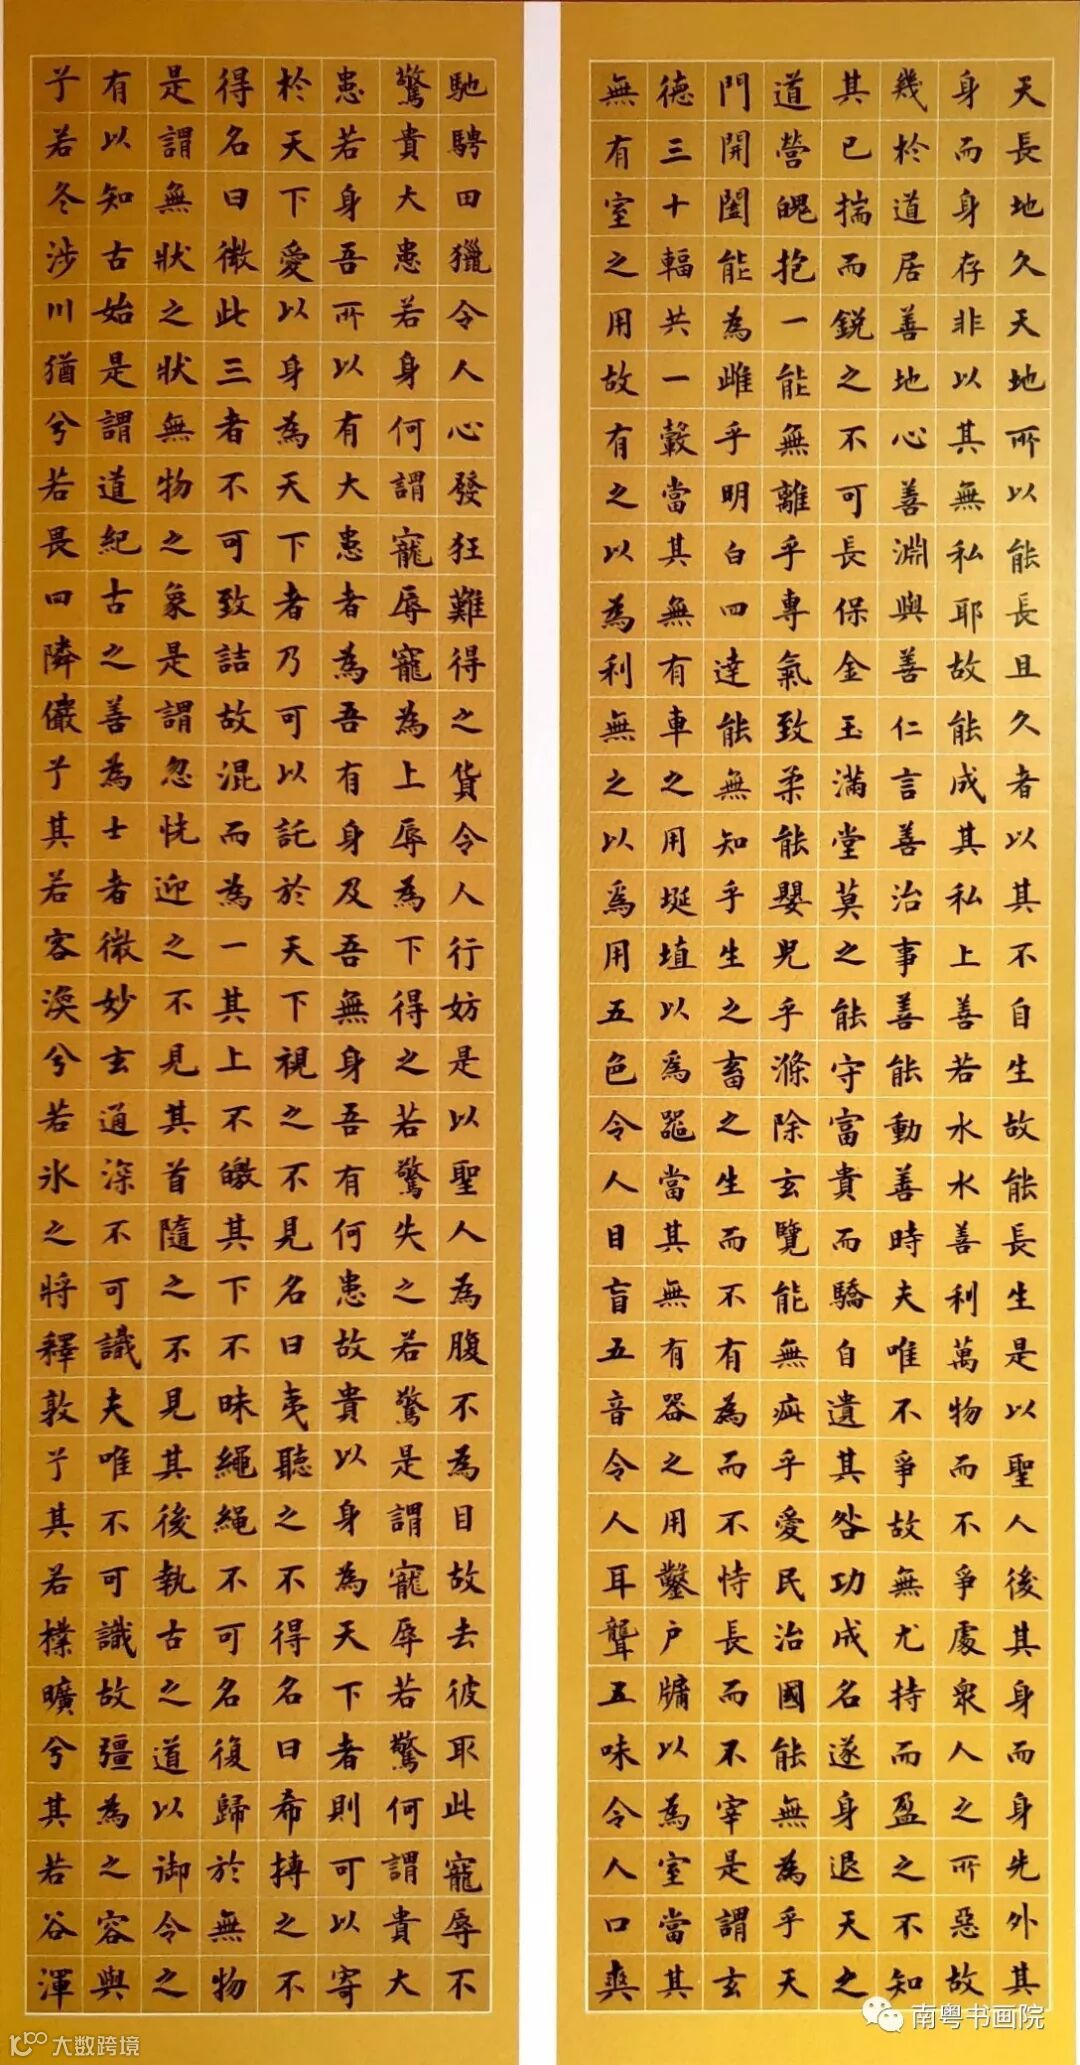 天長地久天地所以能長且久者以其不自生故能長生是以聖人後其身而身先外其
身而身存非以其無私耶故能成其私上善若水水善利萬物而不爭處衆人之所惡故
幾於道居善地心善淵與善仁言善治事善能動善時夫唯不爭故無尤持而盈之不知
其已揣而銳之不可長保金玉滿堂莫之能守富貴而驕自遺其咎功成名遂身退天之
道營魄抱一能無離乎專氣致柔能嬰兒乎滌除玄覽能無疵乎愛民治國能無為乎天
門開闔能為雌乎明白四達能無知乎生之畜之生而不有為而不恃長而不宰是謂玄
德三十輻共一轂當其無有車之用埏埴以為器當其無有器之用鑿戶牖以為室當其
無有室之用故有之以為利無之以為用五色令人目盲五音令人耳聾五味令人口爽
馳騁田獵令人心發狂難得之貨令人行妨是以聖人為腹不為目故去彼取此寵辱不
驚貴大患若身何謂寵辱寵為上辱為下得之若驚失之若驚是謂寵辱若驚何謂貴大
患若身吾所以有大患者為吾有身及吾無身吾有何患故貴以身為天下者則可以寄
於天下愛以身為天下者乃可以託於天下視之不見名曰夷聽之不得名曰希搏之不
得名曰微此三者不可致詰故混而為一其上不皦其下不昧繩繩不可名復歸於無物
是謂無狀之狀無物之象是謂忽恍迎之不見其首隨之不見其後執古之道以御今之
有以知古始是謂道紀古之善為士者微妙玄通深不可識夫唯不可識故彊為之容與
兮若冬涉川猶兮若畏四隣儼兮其若客渙兮若冰之將釋敦兮其若樸曠兮其若谷渾
南粤书画院
大数跨境